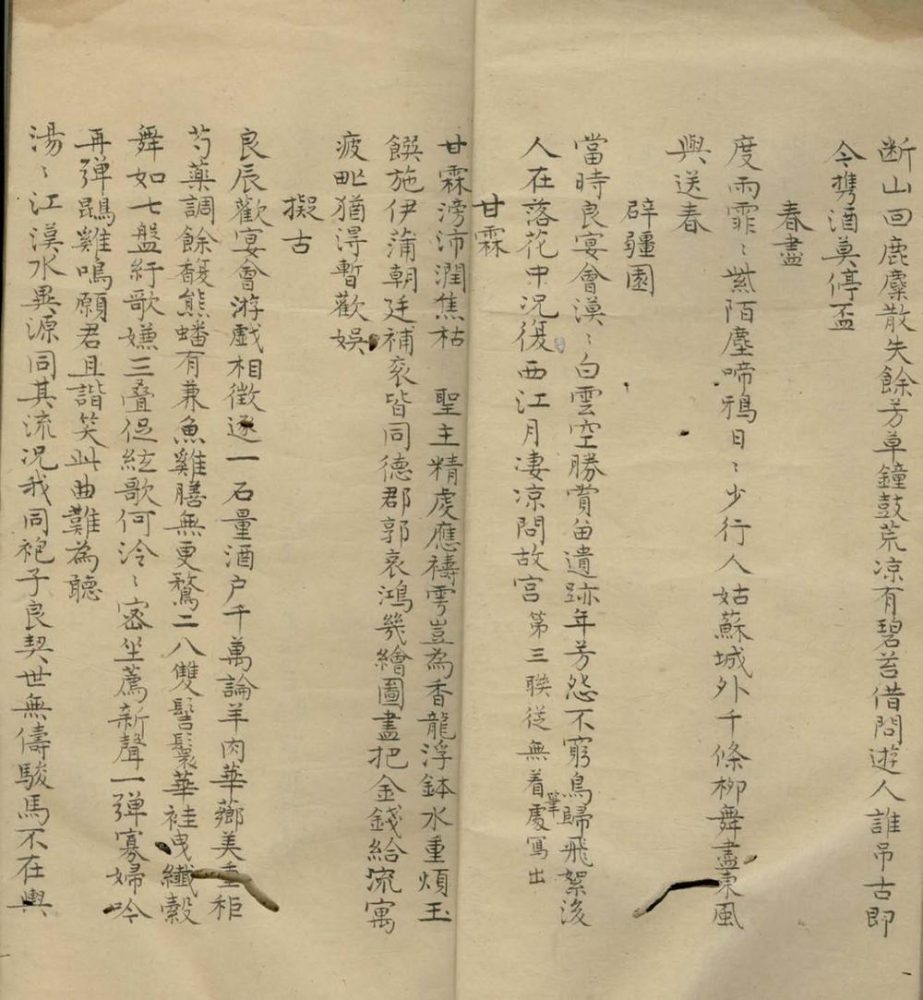 断山回鹿麋散失餘芳草鐘鼓荒凉有碧苔借問遊人誰吊古即
今携酒莫停盃
春盡
度雨霏〻紫陌塵啼鴉日〻少行人姑蘇城外千條栁舞盡東風
興送春
辟疆園
當時良宴會漠〻白雲空勝賞畄遺跡年芳怨不窮鳥歸飛絮後
人在落花中況復西江月凄凉問故宫第三聨従無着筆處寫出
甘霖
甘霖滂沛潤焦枯　聖主精虔應禱雩豈為香龍浮鉢水重煩玉
饌施伊蒲朝廷補衮皆同德郡郭哀鴻幾繪圖盡把金錢給流寓
疲甿猶得暫歡娛
擬古
良辰歡宴會游戲相徵逐一石量酒户千萬論羊肉華薌美重秬
芍藥調餘馥熊蟠有兼魚雞膳無更鶩二八雙髻鬟華袿曳纖縠
舞如七盤紆歌嫌三叠促絃歌何泠〻密坐薦新聲一弹寡婦吟
再弹鵾雞鳴願君且諧笑此曲難為聽
湯〻江漢水異源同其流況我同袍子良契世無儔駿馬不在輿